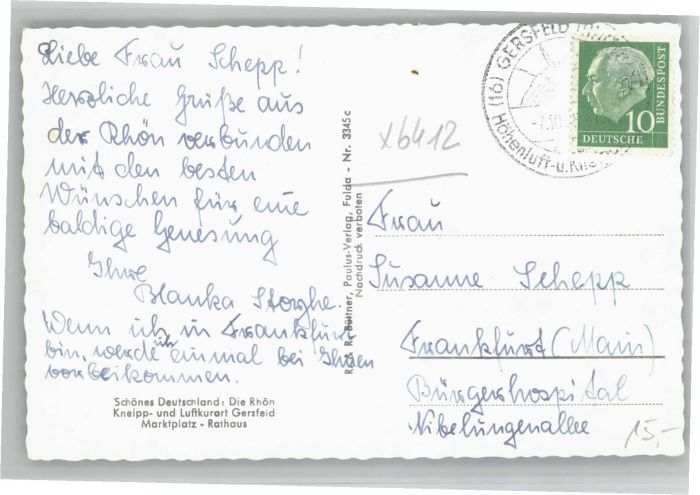 Liebe Frau Schepp!
Herzliche Grüße aus
der Rhön verbunden
mit den besten
Wünschen für eine
baldige Genesung
Ihre
Blanka Storghe.
Wenn ich in Frankfurt
bin, werde ich einmal bei Ihnen
vorbeikommen.
Schönes Deutschland: Die Rhön
Kneipp- und Luftkurort Gersfeld
Marktplatz - Rathaus
R. & R. Büttner, Paulus-Verlag, Fulda - Nr. 3345 c
Nachdruck verboten
x6412
(16) GERSFELD
Höhenluft-u.
10
DEUTSCHE
BUNDESPOST
Frau
Susanne Schepp
Frankfurt (Main)
Bürgerhospital
Nibelungenallee
15,-